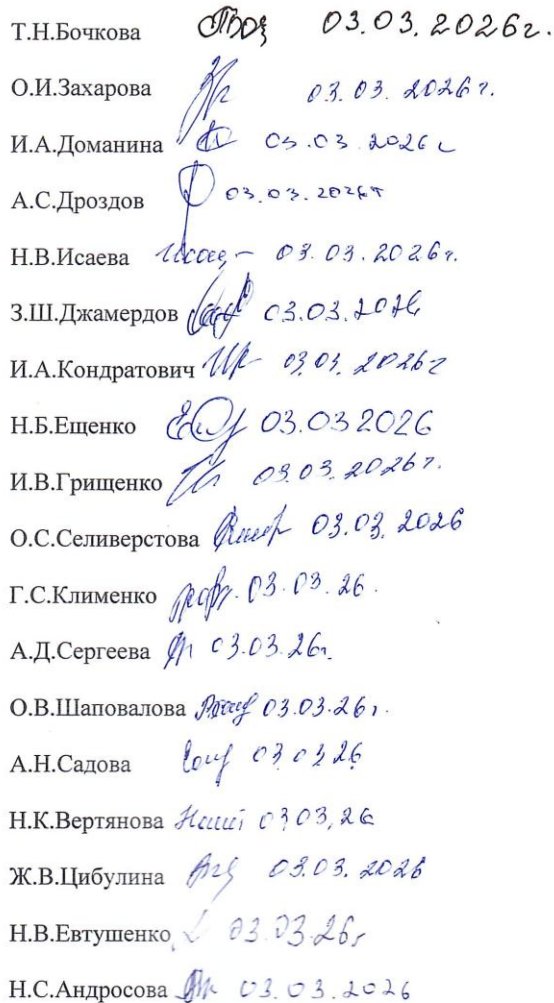 Т.Н.Бочкова 03.03.2026г.
О.И.Захарова 03.03.2026г.
И.А.Доманина 03.03.2026г
А.С.Дроздов 03.03.2026г
Н.В.Исаева 03.03.2026г.
З.Ш.Джамердов 03.03.2026
И.А.Кондратович 03.03.2026г
Н.Б.Ещенко 03.03 2026
И.В.Грищенко 03.03.2026г.
О.С.Селиверстова 03.03.2026
Г.С.Клименко 03.03.26.
А.Д.Сергеева 03.03.26г.
О.В.Шаповалова 03.03.26г.
А.Н.Садова 03 03 26
Н.К.Вертянова 03 03,26
Ж.В.Цибулина 03.03.2026
Н.В.Евтушенко 03.03.26г
Н.С.Андросова 03.03.2026